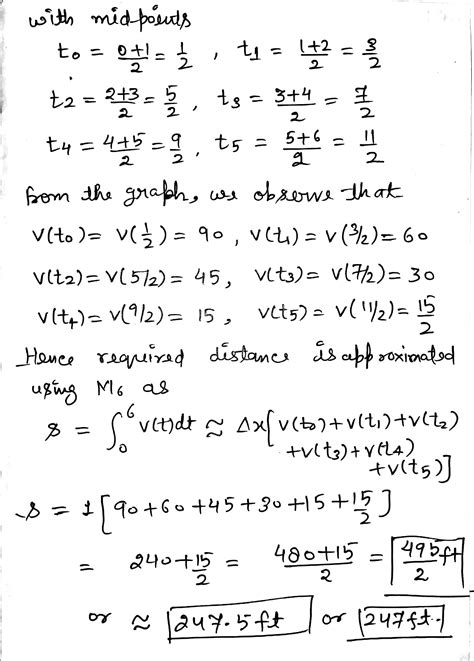 with midpoints
t0 = 0+1/2 = 1/2 , t1 = 1+2/2 = 3/2
t2 = 2+3/2 = 5/2 , t3 = 3+4/2 = 7/2
t4 = 4+5/2 = 9/2 , t5 = 5+6/2 = 11/2
from the graph, we observe that
v(t0) = v(1/2) = 90 , v(t1) = v(3/2) = 60
v(t2) = v(5/2) = 45 , v(t3) = v(7/2) = 30
v(t4) = v(9/2) = 15 , v(t5) = v(11/2) = 15/2
Hence required distance is approximated
using M6 as
s = ∫₀⁶ v(t)dt ≈ Δx[v(t0)+v(t1)+v(t2)
+v(t3)+v(t4)
+v(t5)]
s = 1[90+60+45+30+15+15/2]
= 240+15/2 = 480+15/2 = 495/2 ft
or ≈ 247.5 ft or 247 ft.